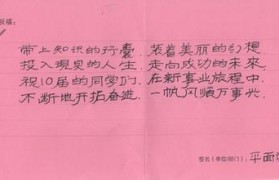 祝福：
带上知识的行囊，装着美丽的幻想
投入现实的人生，走向成功的未来
祝10届的同学们，在新事业旅程中
不断地开拓奋进，一帆风顺万事兴
签名（单位/部门）：平面